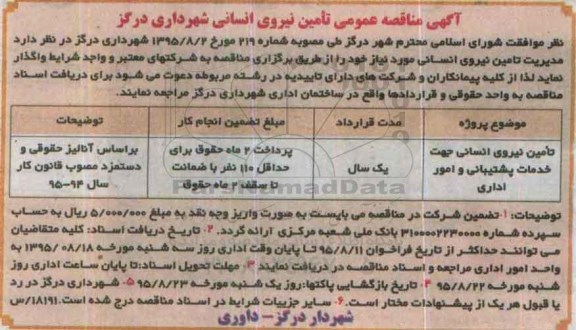 آگهی مناقصه عمومی تأمین نیروی انسانی شهرداری درگز
نظر موافقت شورای اسلامی محترم شهر درگز طی مصوبه شماره ۲۱۹ مورخ ۱۳۹۵/۸/۲ شهرداری درگز در نظر دارد
مدیریت تامین نیروی انسانی مورد نیاز خود را از طریق برگزاری مناقصه به شرکتهای معتبر و واجد شرایط واگذار
نماید لذا از کلیه پیمانکاران و شرکت های دارای تاییدیه در رشته مربوطه دعوت می شود برای دریافت اسناد
مناقصه به واحد حقوقی و قراردادها واقع در ساختمان اداری شهرداری درگز مراجعه نمایند.
موضوع پروژه مدت قرارداد مبلغ تضمین انجام کار توضیحات
تأمین نیروی انسانی جهت خدمات پشتیبانی و امور اداری
یک سال
پرداخت ۲ ماه حقوق برای حداقل ۱۱۰ نفر با ضمانت تا سقف ۲ ماه حقوق
براساس آنالیز حقوقی و دستمزد مصوب قانون کار سال ۹۴-۹۵
ParsNamadData
توضیحات: ۱- تضمین شرکت در مناقصه می بایست به صورت واریز وجه نقد به مبلغ ۵/۰۰۰/۰۰۰ ریال به حساب
سپرده شماره ۳۱۰۰۰۰۲۲۳۰۰۰۰ بانک ملی شعبه مرکزی ارائه گردد. ۲- تاریخ دریافت اسناد: کلیه متقاضیان
می توانند حداکثر از تاریخ فراخوان ۹۵/۸/۱۱ تا پایان وقت اداری روز سه شنبه مورخه ۱۳۹۵/۰۸/۱۸ به
واحد امور اداری مراجعه و اسناد مناقصه در دریافت نمایند ۳- مهلت تحویل اسناد: تا پایان ساعت اداری روز
شنبه مورخه ۹۵/۸/۲۲ ۴- تاریخ بازگشایی پاکتها: روز یک شنبه مورخه ۹۵/۸/۲۳ ۵- شهرداری درگز در رد
یا قبول هر یک از پیشنهادات مختار است. ۶- سایر جزییات شرایط در اسناد مناقصه درج شده است. ۱۸۱۹۱/س
شهردار درگز - داوری